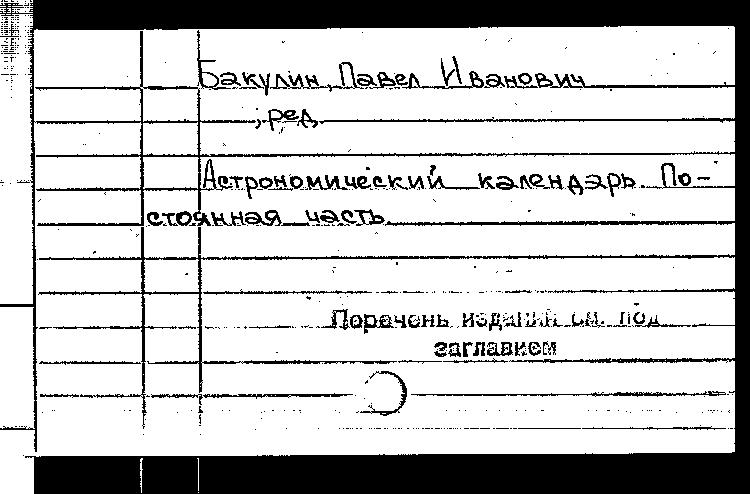 Бакулин, Павел Иванович
, ред.
Астрономический календарь. По-
стоянная часть.
Перечень изданий см. под
заглавием